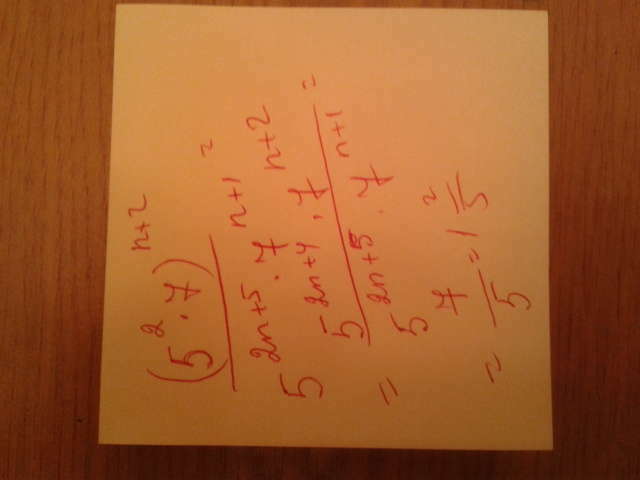 (5² · 7)ⁿ⁺²
─────────── =
5²ⁿ⁺⁵ · 7ⁿ⁺¹
= 5²ⁿ⁺⁴ · 7ⁿ⁺²
─────────── =
5²ⁿ⁺⁵ · 7ⁿ⁺¹
= 7/5 = 1 2/5